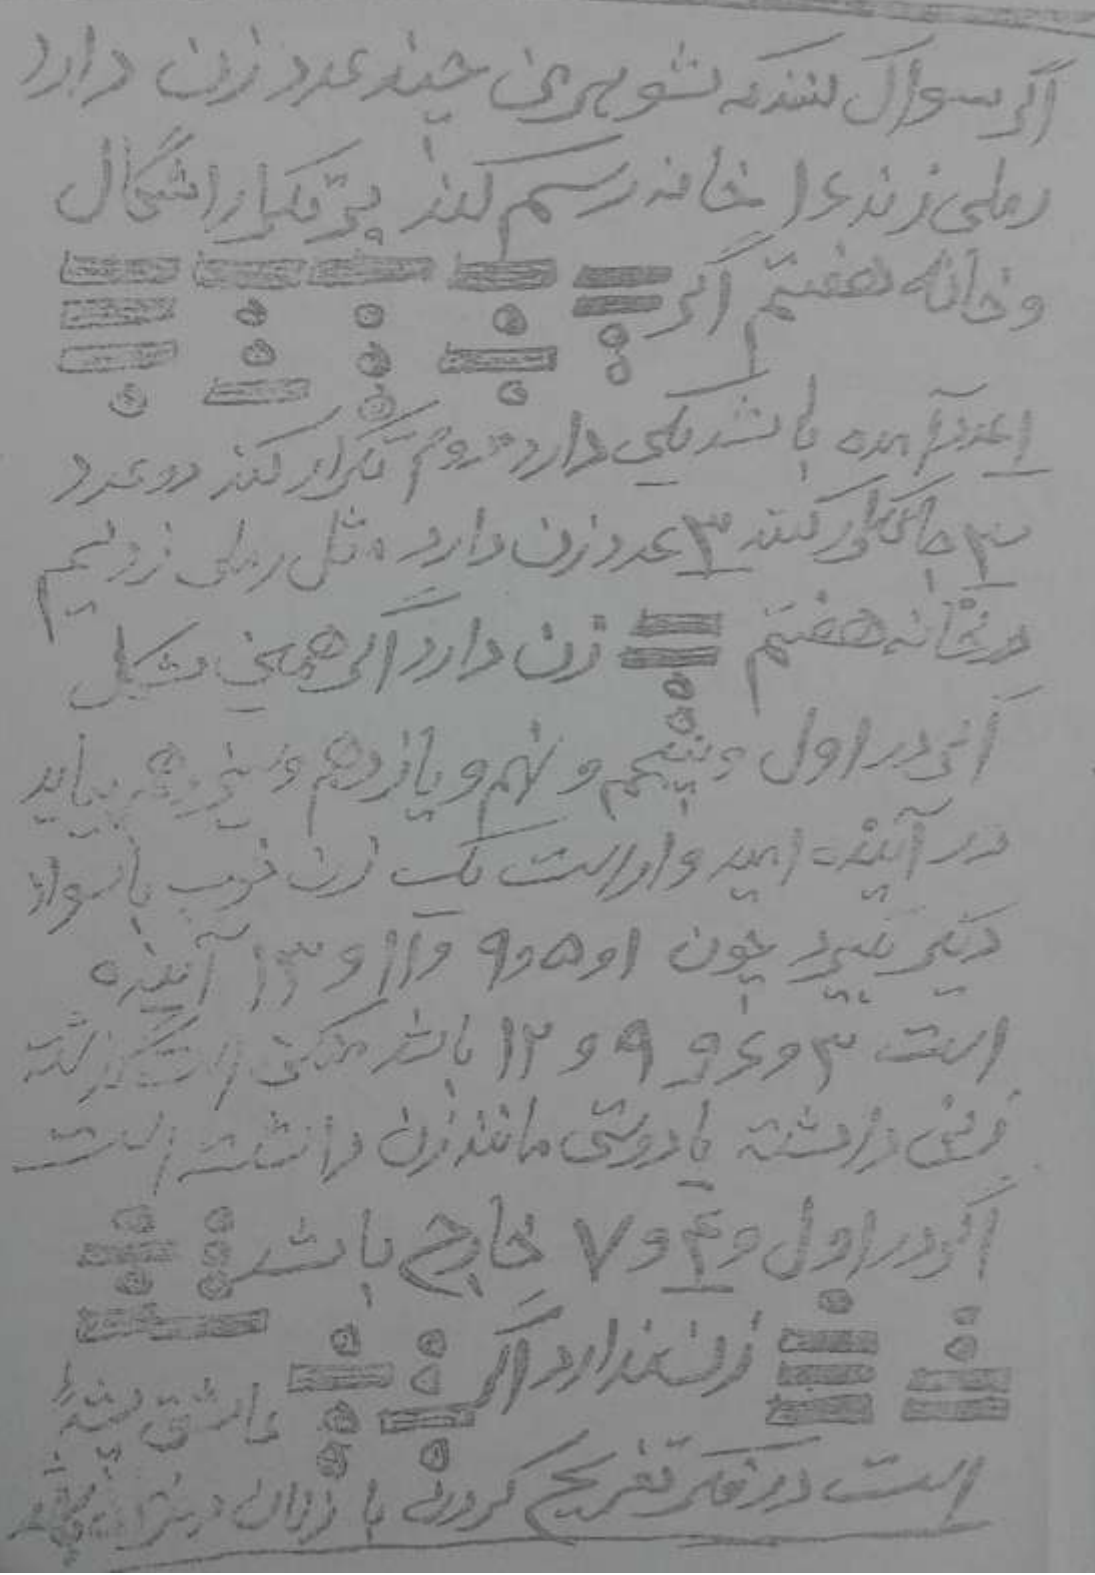 اگر سوال کنند که شوهر من چند عدد زن دارد
رملی زند ۱۶ خانه رسم کند پر تکرار اشگال
و خانه هفتم اگر
۱ عدد آمده باشد یکی دارد دوم تکرار کند دو عدد
۳ جا تکرار کند ۳ عدد زن دارد مثل رملی زدیم
در خانه هفتم زن دارد اگر همین شکل
آتی در اول و پنجم و نهم و یازدهم و سیزدهم بیاید
در آینده امیدوار است یک زن خوب با سواد
دیگر بگیرد چون ۱ و ۵ و ۹ و ۱۱ و ۱۳ آینده
است ۳ و ۶ و ۹ و ۱۲ باشد ممکن است گذشته
زنی داشته یا دوستی مانند زن داشته است
اگر در اول و ۴ و ۷ خارج باشد
زن ندارد اگر عاشق پیشه
است در فکر تفریح کردن با زنان